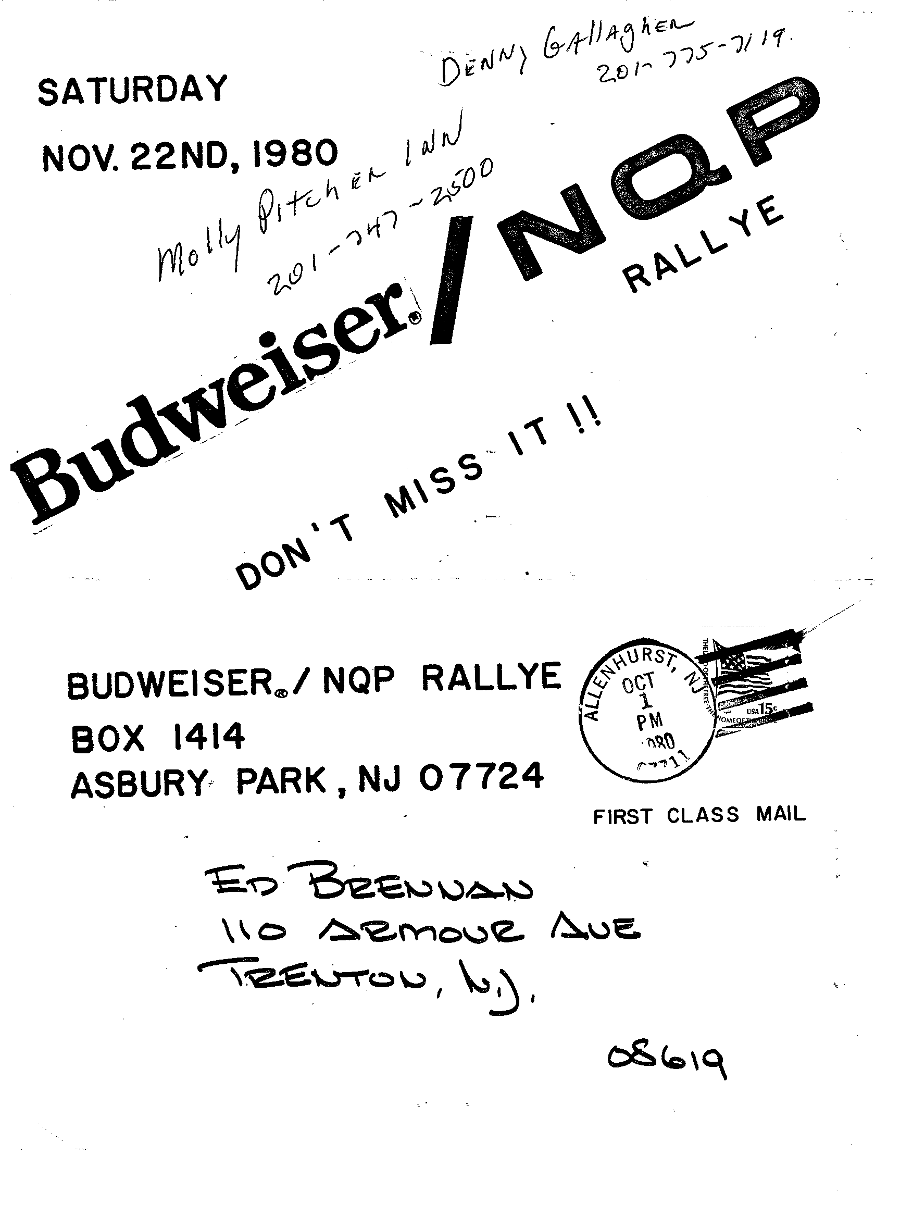 DENNY GALLAGHER
201-775-7119.
SATURDAY
NOV. 22ND, 1980
Molly Pitcher INN
201-747-2500
Budweiser®/NQP
RALLYE
DON'T MISS IT!!
BUDWEISER®/NQP RALLYE
BOX 1414
ASBURY PARK, NJ 07724
ALLENHURST, NJ
OCT
1
PM
USA 15c
FIRST CLASS MAIL
ED BRENNAN
110 ARMOUR AVE
TRENTON, N.J.
08619